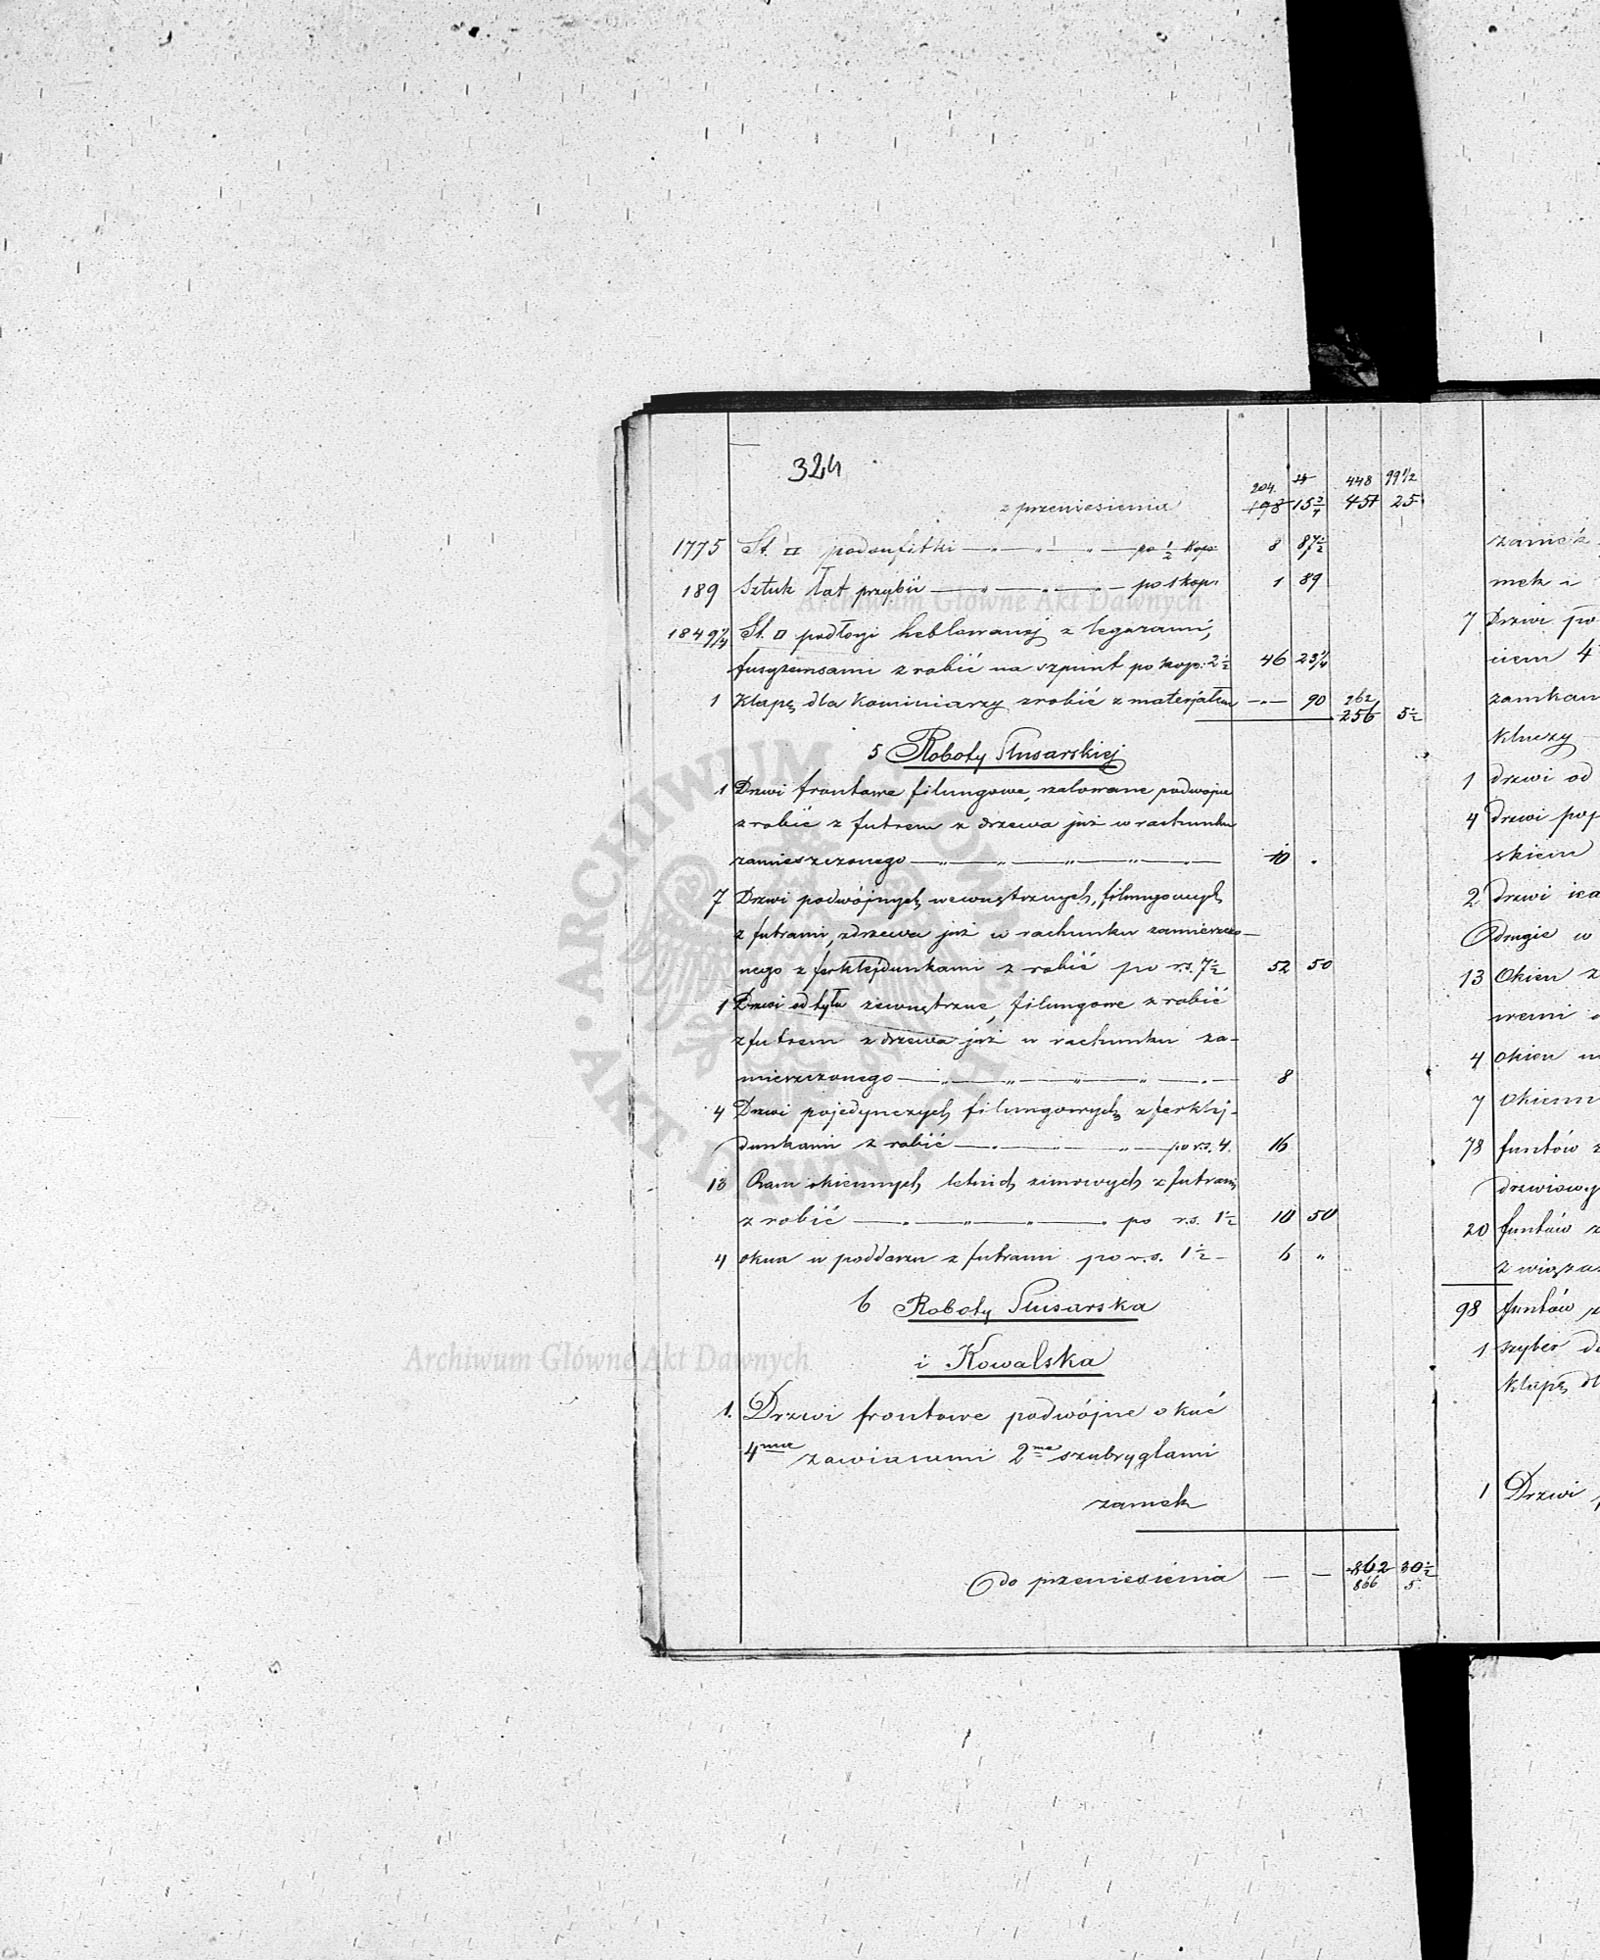 324
204. 448 99 1/2
z przeniesienia 198 15 3/4 457 25
1775 St. □ podsufitki — " — " — po 1/2 kop: 8 87 1/2
189 Sztuk łat przybić — " — " — po 1 kop: 1 89
1849 St. □ podłogi heblowanej z legarami,
fusgzemsami zrobić na szpunt po kop: 2 1/2 46 23 1/4
1 Klapę dla Kominiarzy zrobić z materjałem — " — 90 262
256 5 1/2
5 Roboty Stusarskiej
1 Drzwi frontowe filungowe, szalowane podwojne
zrobić z futrem z drzewa już w rachunku
zamieszczonego — " — " — " — " — 10 .
7 Drzwi podwójnych wewnętrznych, filungowych
z futrami, z drzewa już w rachunku zamieszczo-
nego z ferklejdunkami zrobić po r.s. 7 1/2 52 50
1 Drzwi od tyłu zewnętrzne, filungowe zrobić
z futrem z drzewa już w rachunku za-
mieszczonego — " — " — " — " — 8
4 Drzwi pojedynczych filungowych z ferklej-
dunkami zrobić — " — " — " — po r.s. 4. 16
13 Ram okiennych letnich zimowych z futrami
zrobić — " — " — " — po r.s. 1 1/2 10 50
4 okna w poddaszu z futrami po r.s. 1 1/2 - 6 "
6 Roboty Slusarska
i Kowalska
1. Drzwi frontowe podwójne okuć
4ma zawiasami 2ma szubryglami
zamek
do przeniesienia — — 862 30 1/2
866 5
zamek
mek i
7 Drzwi po
ciem 4
zamkam
kluczy
1 drzwi od
4 drzwi poj
skiem
2 drzwi
drugie w
13 Okien z
wemi
4 okien
7 okienn
78 funtów
drzwiowy
20 funtów z
związa
98 funtów z
1 szyber do
klapę dl
1 Drzwi
Archiwum Główne Akt Dawnych
Archiwum Główne Akt Dawnych
ARCHIWUM GŁÓWNE AKT DAWNYCH